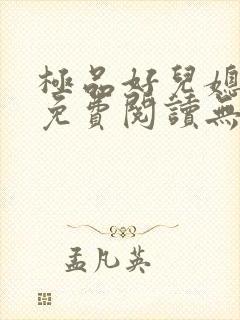 極品好兒媳
免費閱讀無
孟凡英